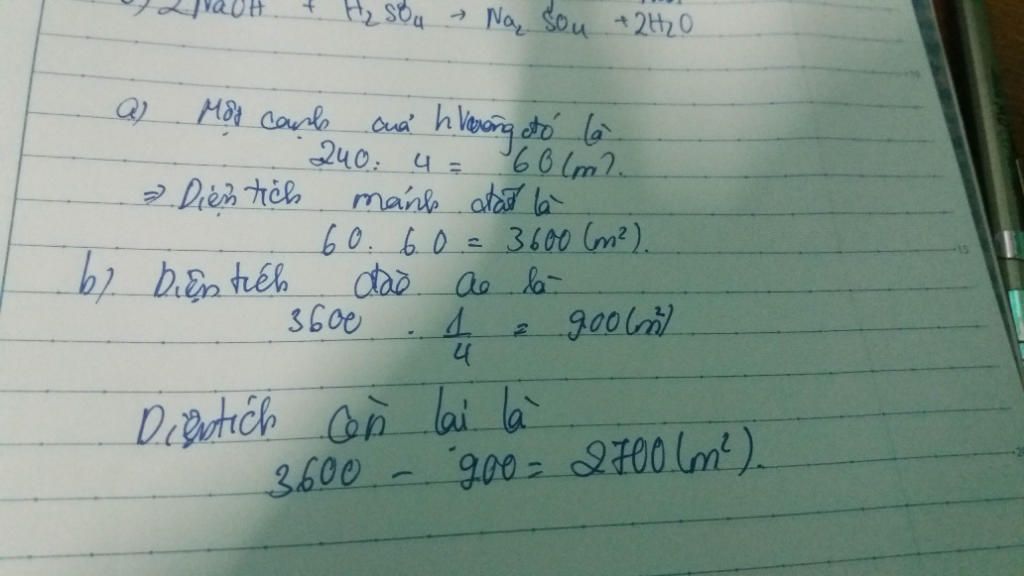 2NaOH + H2SO4 → Na2SO4 + 2H2O
a) Một cạnh của hvuông đó là
240 : 4 = 60 (m).
⇒ Diện tích mảnh đất là
60 . 60 = 3600 (m²).
b) Diện tích đào ao là
3600 . 1/4 = 900 (m²)
Diện tích còn lại là
3600 - 900 = 2700 (m²).